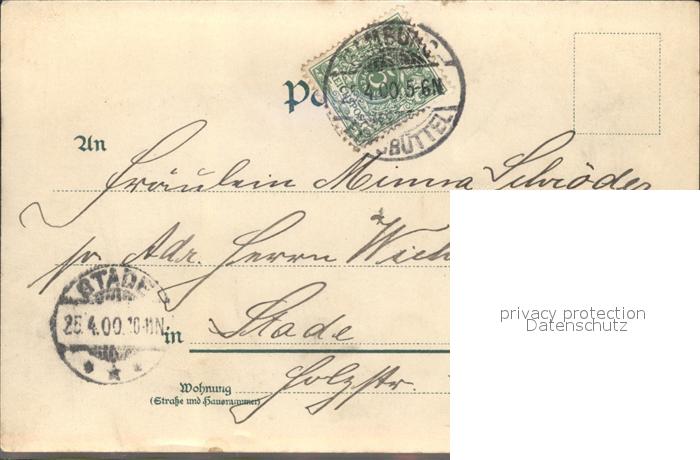 HAMBURG
4.00.5-6N
BÜTTEL
REICHSPOST
5
An
Fräulein Minna Schröder
pr Adr. Herrn Wich
STADE
25.4.00.10-11N.
in
Stade
Wohnung
(Straße und Hausnummer)
Holzstr.
privacy protection
Datenschutz